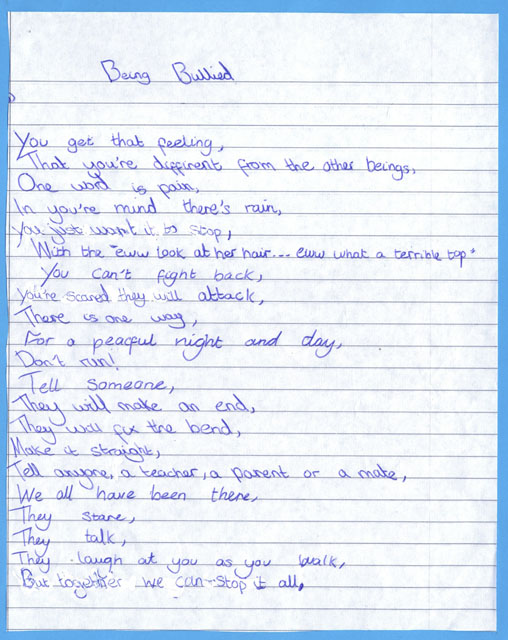 Being Bullied
You get that feeling,
That you're different from the other beings,
One word is pain,
In you're mind there's rain,
You just want it to stop,
With the "eww look at her hair... eww what a terrible top"
You can't fight back,
You're scared they will attack,
There is one way,
For a peacful night and day,
Don't run!
Tell someone,
They will make an end,
They will fix the bend,
Make it straight,
Tell anyone, a teacher, a parent or a mate,
We all have been there,
They stare,
They talk,
They laugh at you as you walk,
But together we can stop it all,